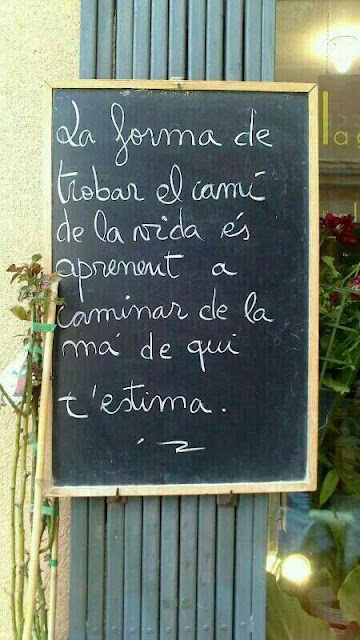 La forma de
trobar el camí
de la vida és
aprenent a
caminar de la
má de qui
t'estima.